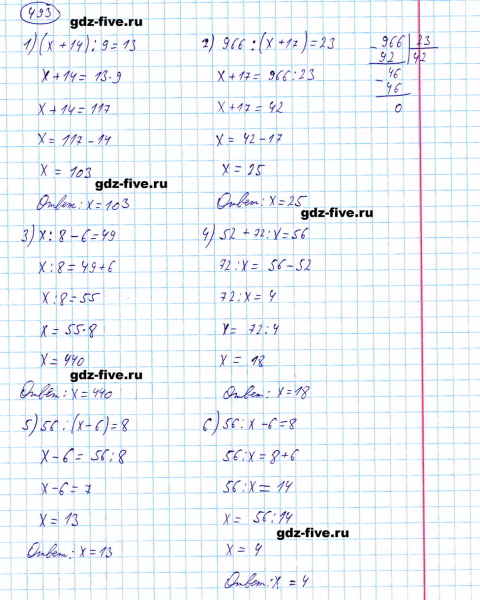 493
gdz-five.ru
1) (x + 14) : 9 = 13
x + 14 = 13 · 9
x + 14 = 117
x = 117 - 14
x = 103
gdz-five.ru
Ответ: x = 103
2) 966 : (x + 17) = 23
x + 17 = 966 : 23
x + 17 = 42
x = 42 - 17
x = 25
Ответ: x = 25
gdz-five.ru
966 | 23
- 92 | 42
46
- 46
0
3) x : 8 - 6 = 49
x : 8 = 49 + 6
x : 8 = 55
x = 55 · 8
x = 440
gdz-five.ru
Ответ: x = 440
4) 52 + 72 : x = 56
72 : x = 56 - 52
72 : x = 4
x = 72 : 4
x = 18
Ответ: x = 18
5) 56 : (x - 6) = 8
x - 6 = 56 : 8
x - 6 = 7
x = 13
Ответ: x = 13
6) 56 : x - 6 = 8
56 : x = 8 + 6
56 : x = 14
x = 56 : 14
gdz-five.ru
x = 4
Ответ: x = 4